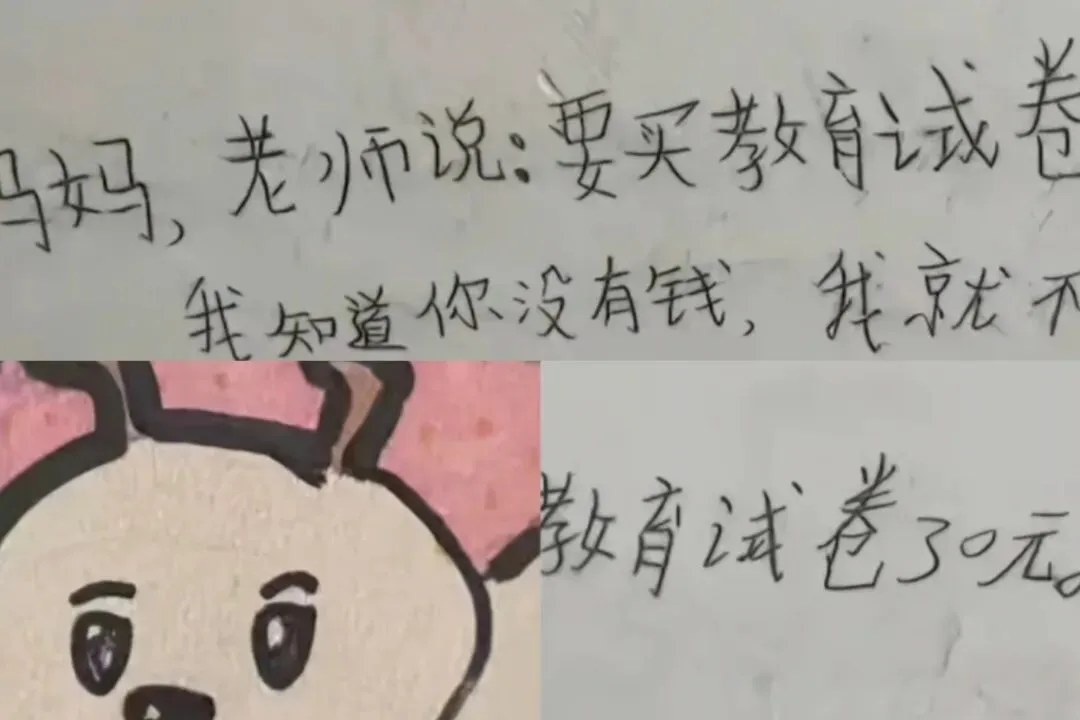 妈妈，老师说：要买教育试卷
我知道你没有钱，我就不
教育试卷30元。